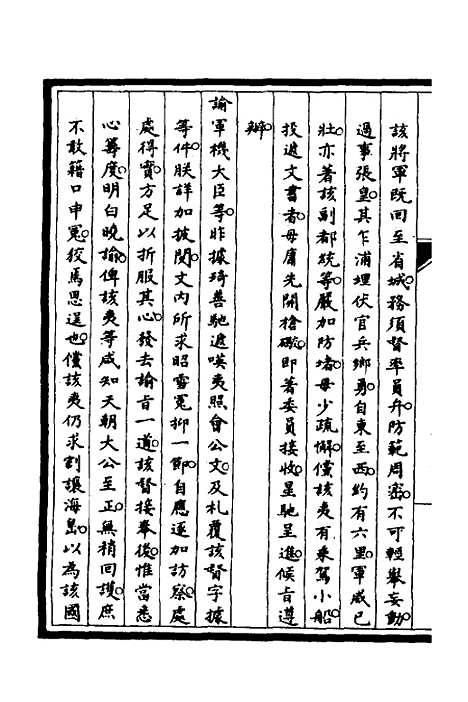 該將軍既回至省城務須督率員弁防範周密不可輕舉妄動
過事張皇其乍浦埋伏官兵鄉勇自東至西約有六里軍威已
壯亦著該副都統等嚴加防堵毋少疏懈儻該夷有乘駕小船
投遞文書者毋庸先開槍礮即著委員接收星馳呈進候旨遵
辦
諭軍機大臣等昨據琦善馳遞嘆夷照會公文及札覆該督字據
等件朕詳加披閱文內所求昭雪冤抑一節自應逐加訪察處
處得實方足以折服其心發去諭旨一道該督接奉後惟當悉
心籌度明白曉諭俾該夷等咸知天朝大公至正無稍回護庶
不敢籍口申冤狡焉思逞也儻該夷仍求割讓海島以為該國